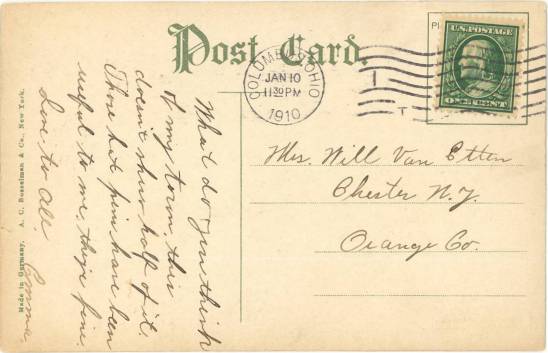 Post Card.
COLUMBUS, OHIO
JAN 10
11 30 PM
1910
U.S. POSTAGE
ONE CENT
What do you think
of my town, this
doesn't show half of it.
Those hat pins have been
useful to me, they're fine.
Love to all.
Emma.
Mrs. Will Van Etten
Chester N.Y.
Orange Co.
Made in Germany. A. C. Bosselman & Co., New York.